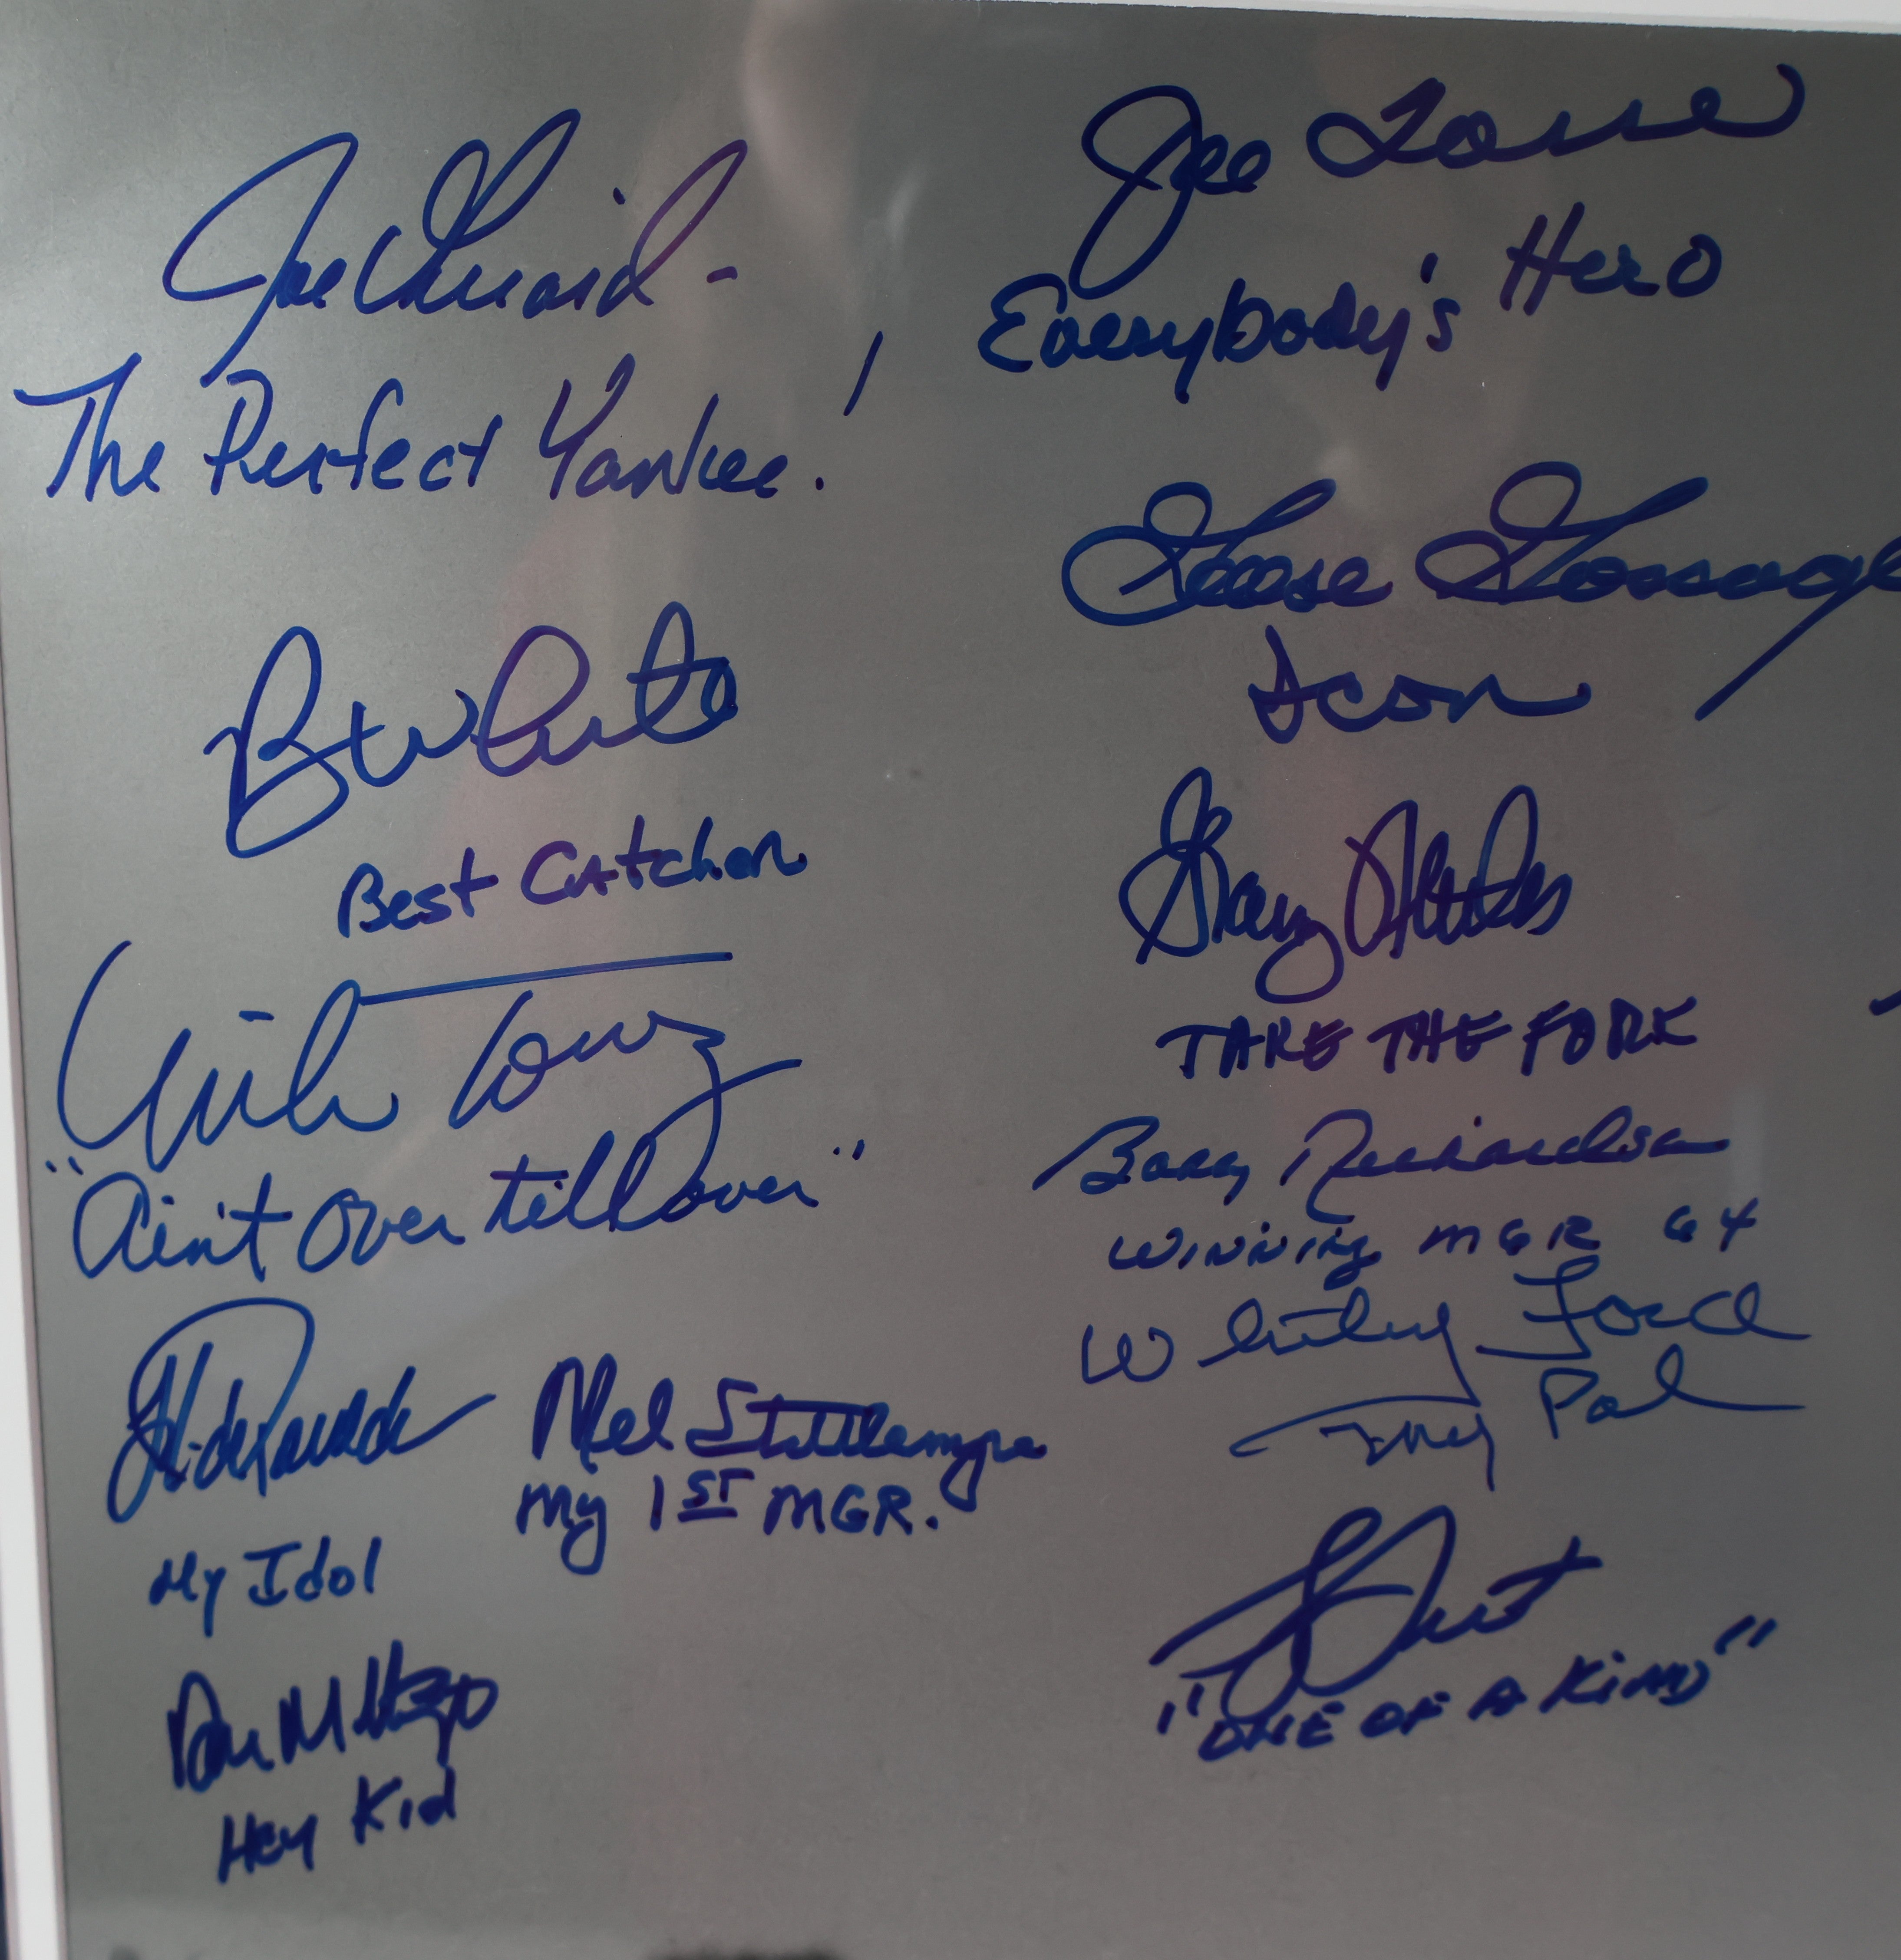 Joe Girardi -
The Perfect Yankee!
B White
Best Catcher
"Ain't Over till over"
My Idol
Mel Stottlemyre
My 1ST MGR.
Don Mattingly
Hey Kid
Joe Torre
Everybody's Hero
Goose Gossage
Icon
TAKE THE FORK
Bobby Richardson
WINNING MGR 64
Whitey Ford
My Pal
"ONE OF A KIND"